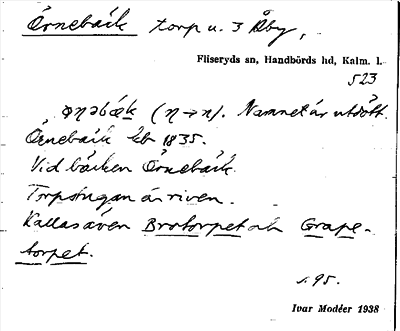 Örnebäck torp u. 3 Åby,
Fliseryds sn, Handbörds hd, Kalm. l.
523
ø̀ṇəbæk (ṇ → n). Namnet är utdött.
Örnebäck kb 1835.
Vid bäcken Örnebäck.
Torpstugan är riven.
Kallas även Brotorpet och Grape-
torpet.
s. 95.
Ivar Modéer 1938